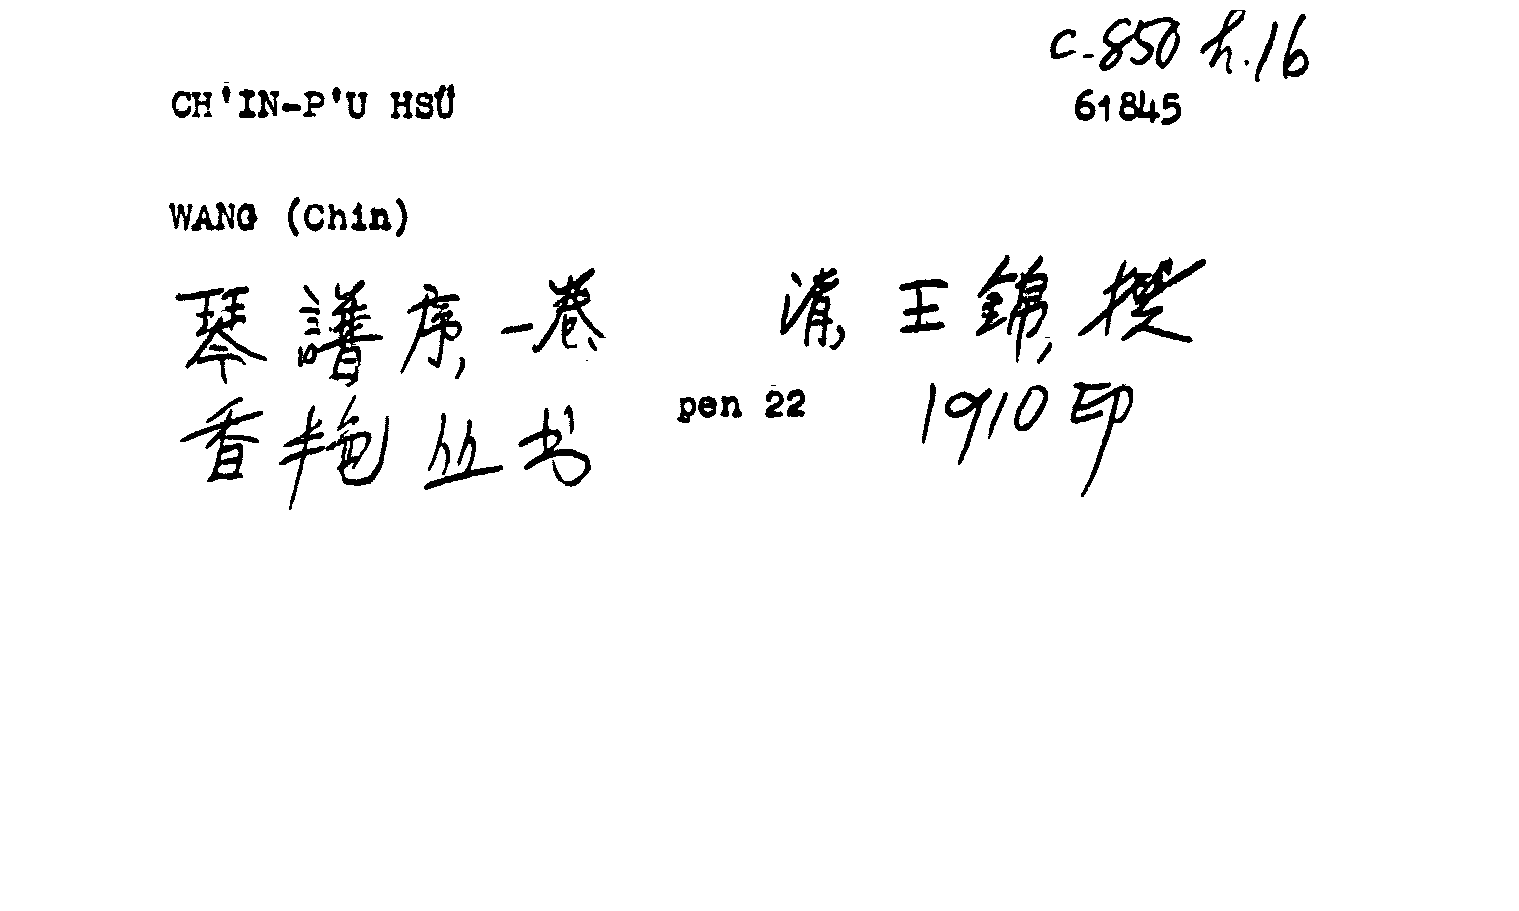 c-850 h.16
CH'IN-P'U HSÜ 61845
WANG (Chin)
琴譜序,一卷、 清,王錦,撰
香艳丛书 pen 22 1910印